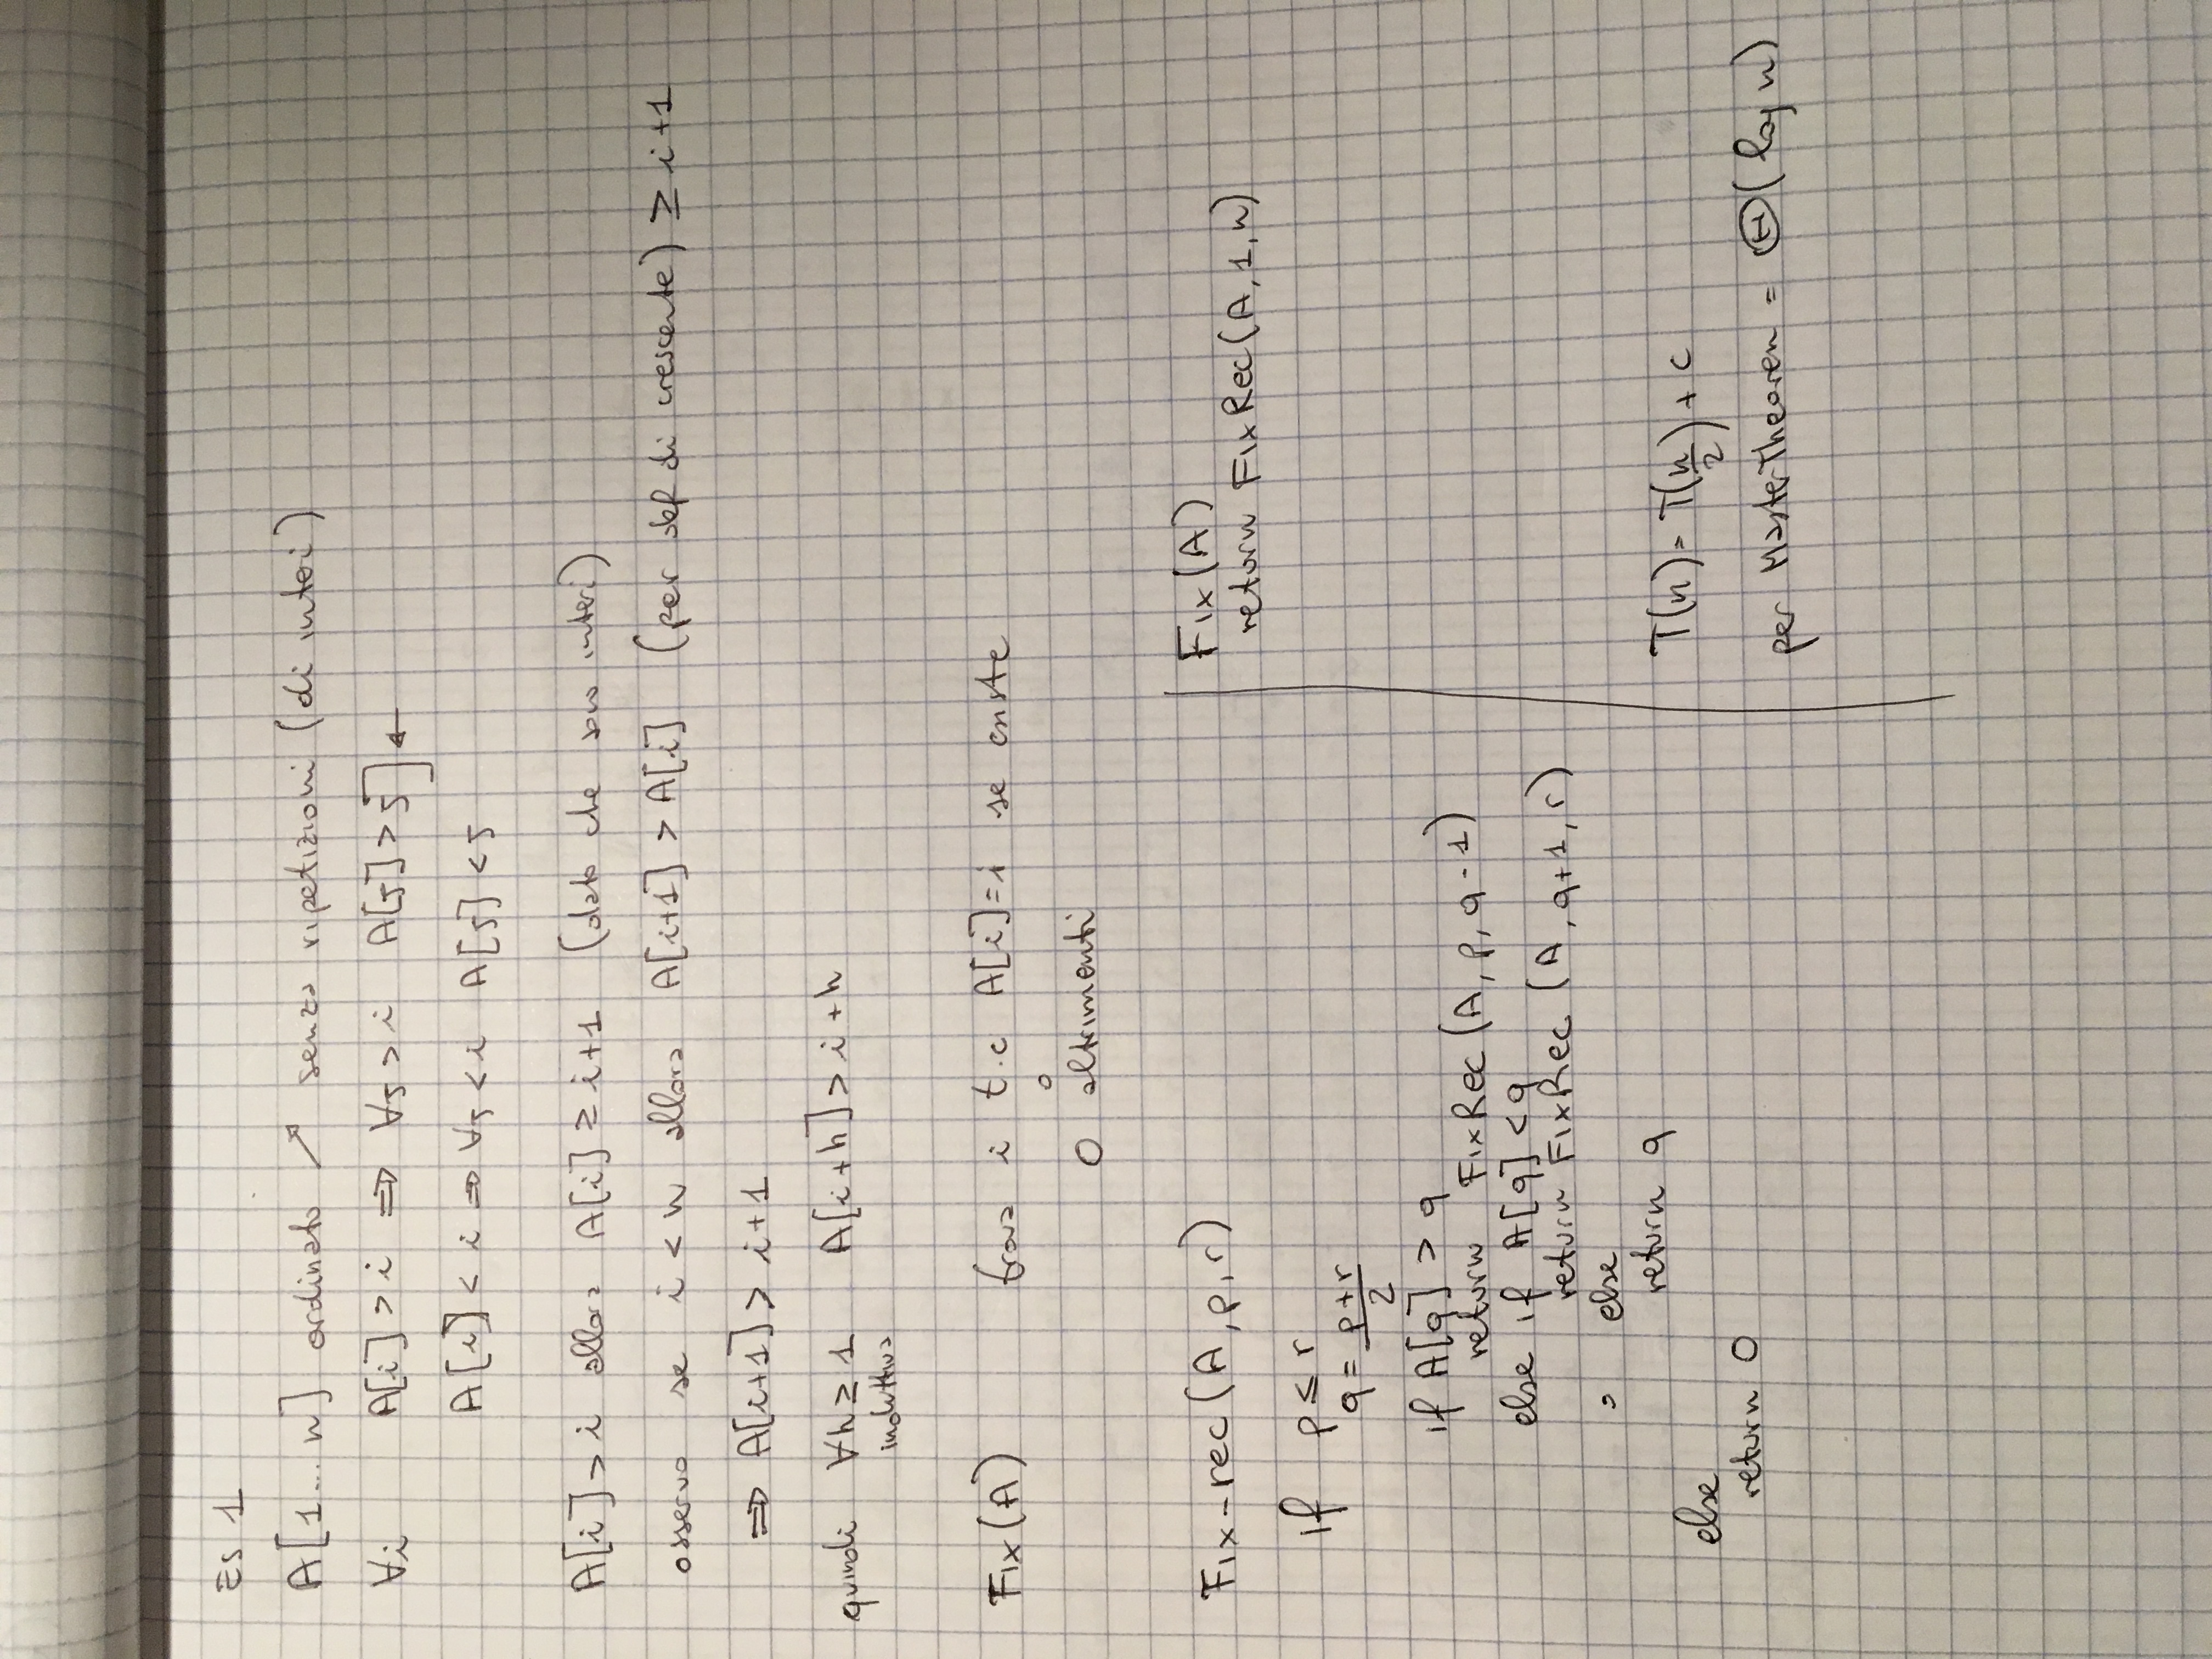 ES 1
A[1...n] ordinato ↗ senza ripetizioni (di interi)
∀i A[i] > i ⇒ ∀j > i A[j] > j] ←
A[i] < i ⇒ ∀j < i A[j] < j
A[i] > i allora A[i] ≥ i+1 (dato che sono interi)
osservo se i < n allora A[i+1] > A[i] (per def di crescente) ≥ i+1
⇒ A[i+1] > i+1
quindi ∀h ≥ 1 A[i+h] > i+h
induttiva
Fix(A) trova i t.c A[i]=i se esiste
o
0 altrimenti
Fix-rec(A, p, r)
if p ≤ r
q = p+r/2
if A[q] > q
return FixRec(A, p, q-1)
else if A[q] < q
return FixRec(A, q+1, r)
else
return q
else
return 0
Fix(A)
return FixRec(A, 1, n)
T(n) = T(n/2) + c
per MasterTheorem = Θ(log n)